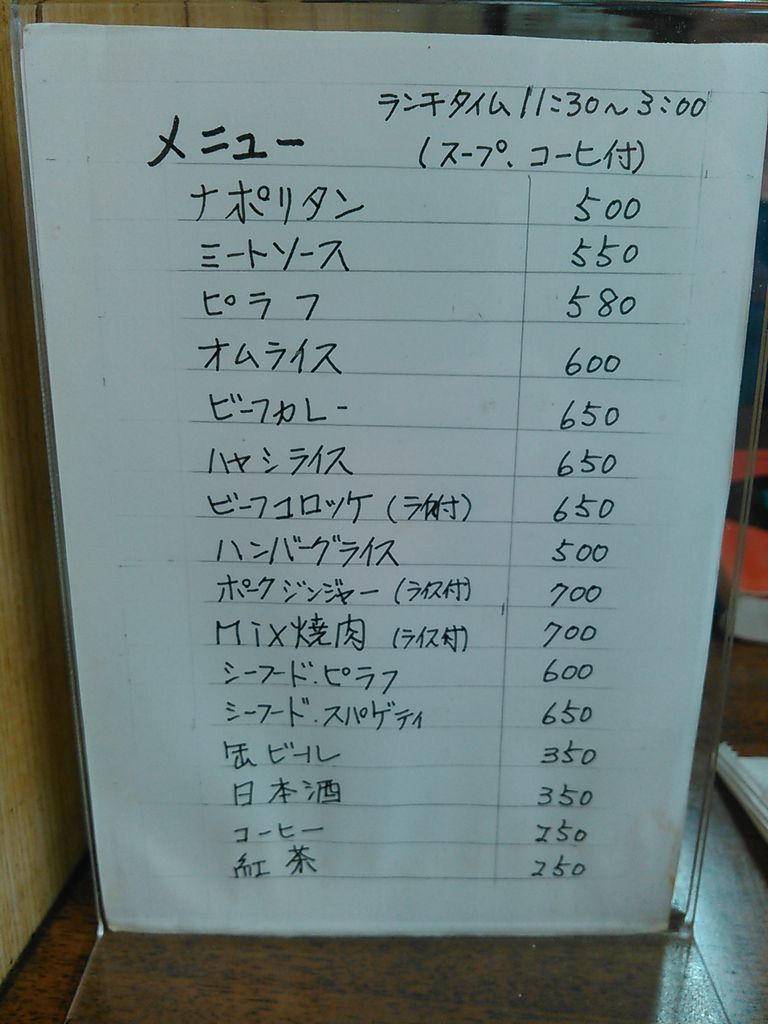 ランチタイム 11:30～3:00
メニュー (スープ、コーヒ付)
ナポリタン 500
ミートソース 550
ピラフ 580
オムライス 600
ビーフカレー 650
ハヤシライス 650
ビーフコロッケ (ライス付) 650
ハンバーグライス 500
ポークジンジャー (ライス付) 700
Mix焼肉 (ライス付) 700
シーフード.ピラフ 600
シーフード.スパゲティ 650
缶ビール 350
日本酒 350
コーヒー 250
紅茶 250